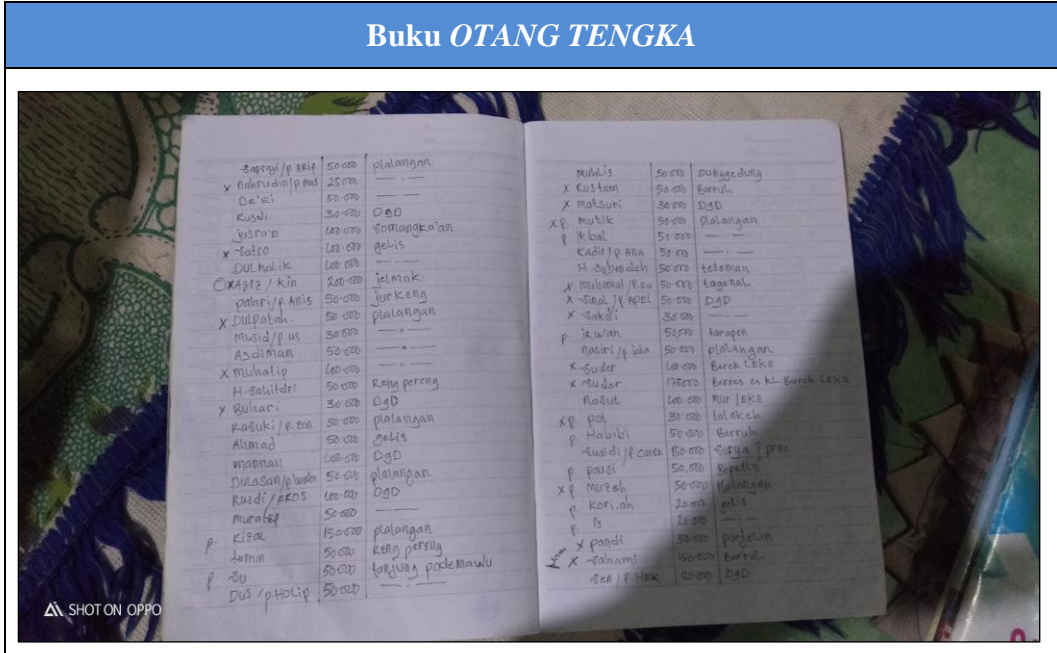 Buku OTANG TENGKA
Saprayi / p. ARip 50.000 plalangan
x Nahrudin / p. mus 25000 — . —
De'Ei 50.000 — . —
Rusdi 30.000 DgD
jusra'E 100.000 Somangka'an
x Satro 100.000 gelis
DUL halik 100.000
O x Aziz / kin 200.000 jelmak
pahri / p. Anis 50.000 jurkeng
x DULpatah 50.000 plalangan
Musid / p. us 30.000 — " —
Asdiman 50.000 — " —
x muhatip 100.000
H. Sahitdri 50.000 Reng pereng
x Buhari 30.000 DgD
Rasuki / p. zen 50.000 plalangan
Ahmad 50.000 gelis
mannan 100.000 DgD
DULasan / p. 50.000 plalangan
Rusdi / EROS 100.000 DgD
muratep 50.000 — . —
p. Rizal 150.000 plalangan
tomin 50.000 Reng pereng
p Su 50.000 tanjung pademawu
DUS / p. HOLip 50.000 — . —
MUHLis 50.000 Dunggedung
x Rustam 50.000 Barruh
x matsuri 30.000 DgD
x p. mutik 50.000 plalangan
p ikbal 50.000 — . —
Kadir / p. Ana 50.000
H. Subundeh 50.000 teteman
x muhamat / p. su 50.000 tagonah
x Sinal / p. APEL 50.000 DgD
x Sakdi 30.000 — . —
p. irwan 50,000 tarapen
nasiri / p. ida 50.000 plalangan
x Suder 100.000 Barek LEKE
x Suder 175000 Barres es kl Barek LEKE
Nasut 100.000 Mur LEKE
x p. pot 30.000 Lalakeh
p. Habibi 50.000 Berruh
Suaidi / p. 150.000 Surya 1 pres
p. pausi 50,000
x p. Murzeh 50.000 plalangan
p. Kori,ah 20.000 gelis
p. is 20.000 — . —
x pandi 50.000 panjelin
x Sahami 150.000 Barruh
Sen / p. Hok 50.000 DgD
SHOT ON OPPO